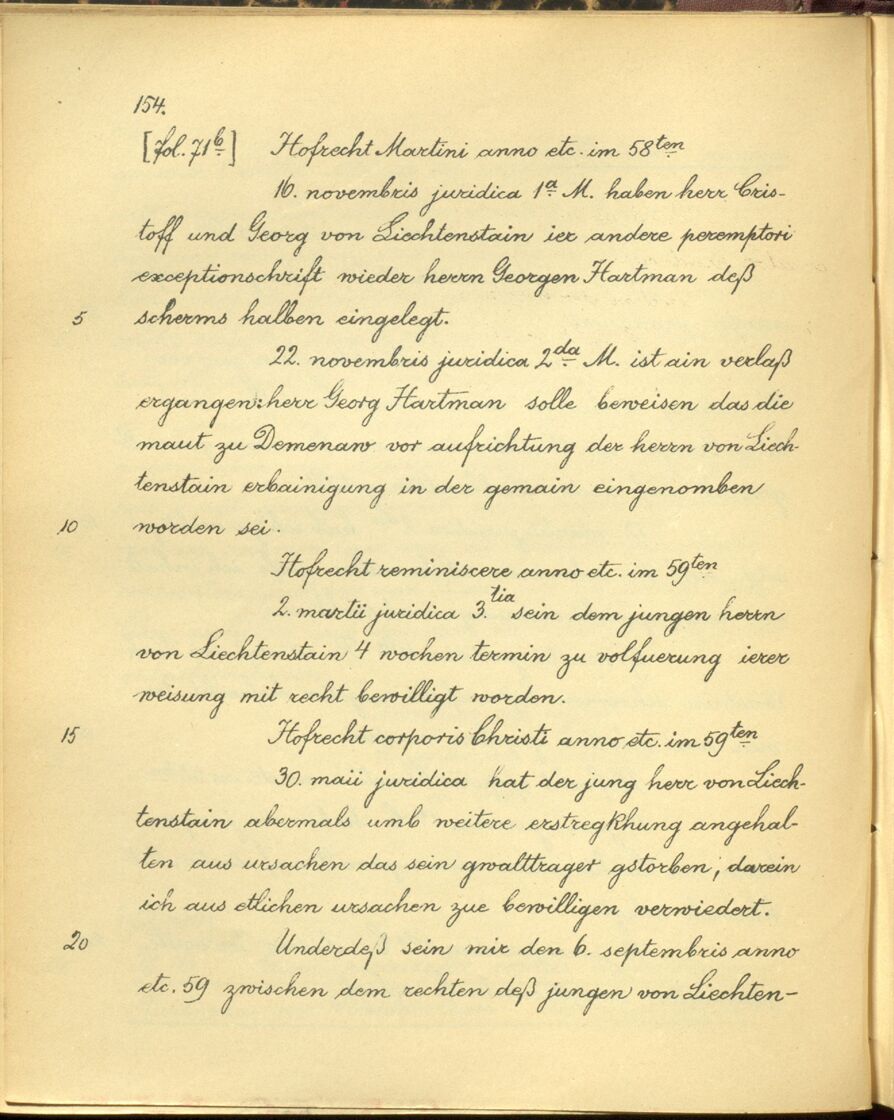 154.
[Fol. 71b.] Hofrecht Martini anno etc. im 58ten
16. novembris juridica 1a. M. haben herr Cris-
toff und Georg von Liechtenstain ier andere peremptori
exceptionschrift wieder herrn Georgen Hartman deß
5 scherms halben eingelegt.
22. novembris juridica 2da. M. ist ain verlaß
ergangen: herr Georg Hartman solle beweisen das die
maut zu Demenaw vor aufrichtung der herrn von Liech-
tenstain erbainigung in der gemain eingenomben
10 worden sei.
Hofrecht reminiscere anno etc. im 59ten
2. martii juridica 3.tia sein dem jungen herrn
von Liechtenstain 4 wochen termin zu volfuerung ierer
weisung mit recht bewilligt worden.
15 Hofrecht corporis Christi anno etc. im 59ten
30. maii juridica hat der jung herr von Liech-
tenstain abermals umb weitere erstregkhung angehal-
ten aus ursachen das sein gwalttrager gstorben, darein
ich aus etlichen ursachen zue bewilligen verwiedert.
20 Underdeß sein mir den 6. septembris anno
etc. 59 zwischen dem rechten deß jungen von Liechten-